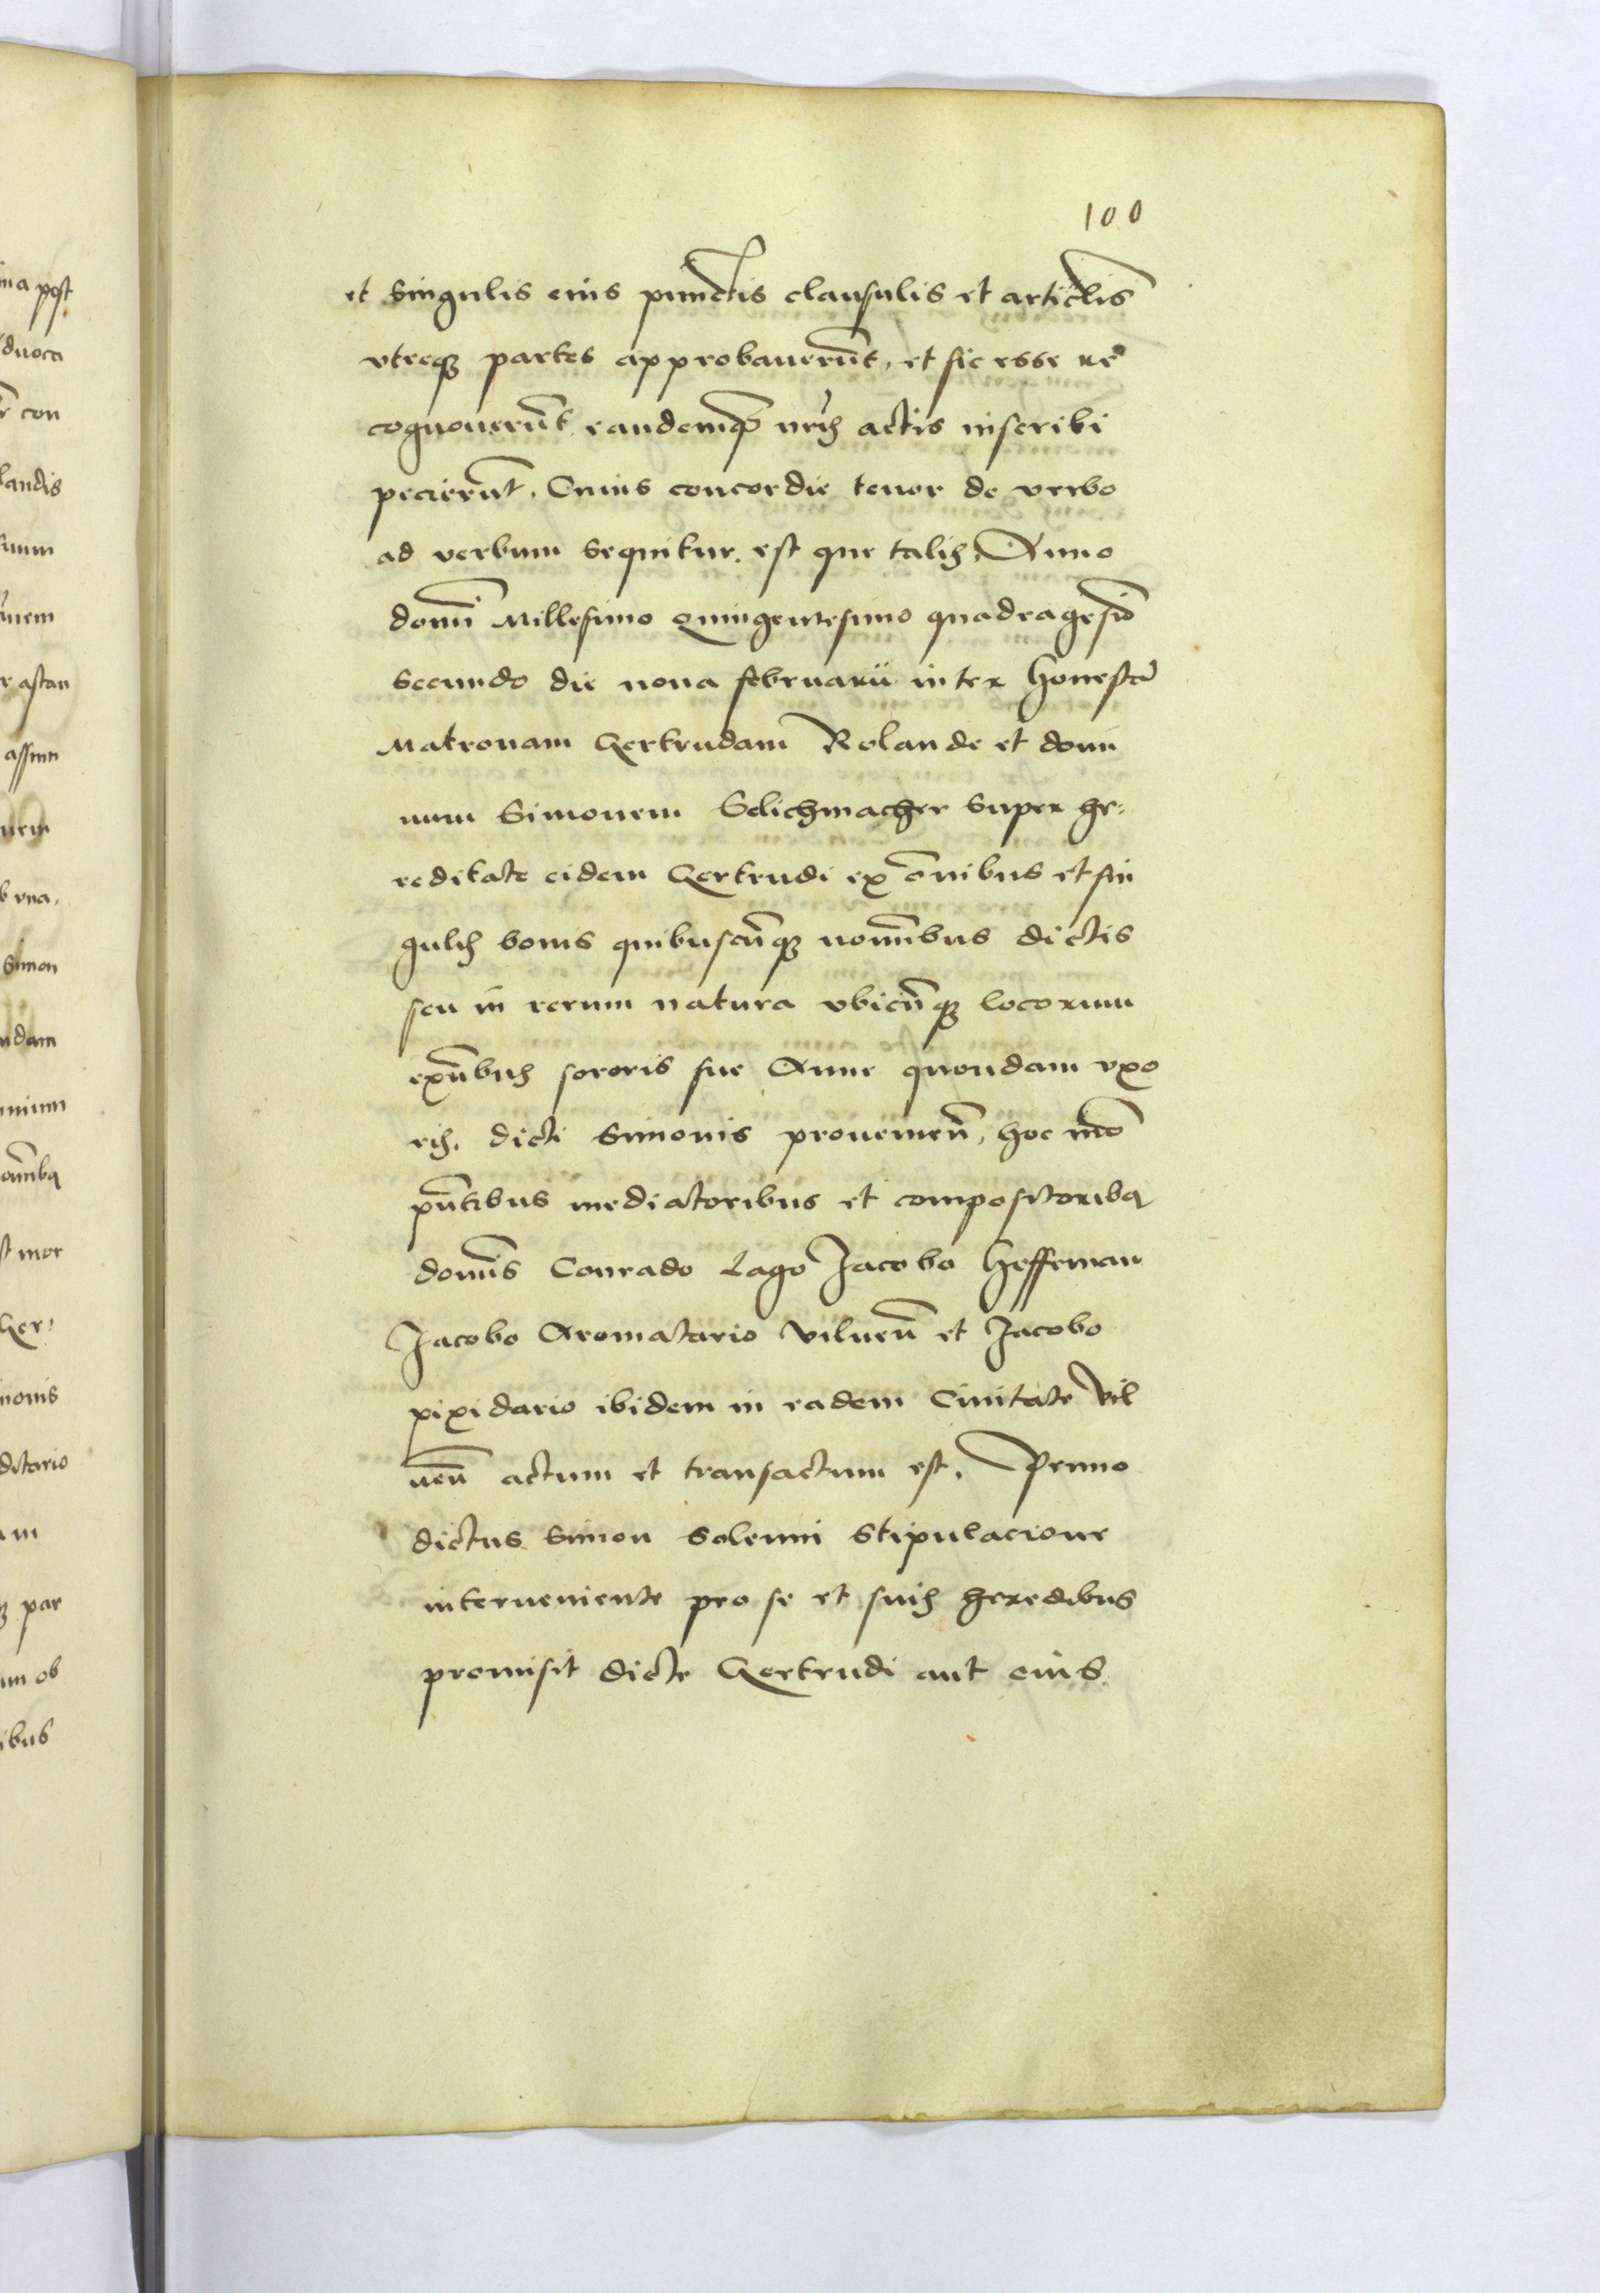 100
et singulis eius punctis clausulis et articlis
vtreq partes approbauerut, et sic esse re
cognouerut eandemq nris actis inscribi
pecierut. Cuius concordie tenor de verbo
ad verbum sequitur. est que talis. Anno
domi Millesimo quingentesimo quadragesio
secundo die nona februarii inter honesta
Matronam Gertrudam Rolande et domi
num Simonem Selichmacher super he-
reditate eidem Gertrudi ex onibus et sin
gulis bonis quibuscuq nominbus dictis
seu in rerum natura vbicuq locorum
exntibus sororis sue Anne quondam vxo
ris. dicti Simonis prouenien, hoc mo
pntibus mediatoribus et compositoribq
domis Conrado Lago Jacobo Heffeman
Jacobo Aromatario vilnen et Jacobo
pixidario ibidem in eadem Ciuitate vil
nen actum et transactum est. Primo
dictus Simon solenni stipulacione
interueniente pro se et suis heredibus
promisit dicte Gertrudi aut eius
ina post
duoca
con
landis
uum
uem
r astan
assum
uem
b vna,
Simon
udam
nium
omnibq
st mor
Ger-
nonis
ditario
um
q par
um ob
ibus